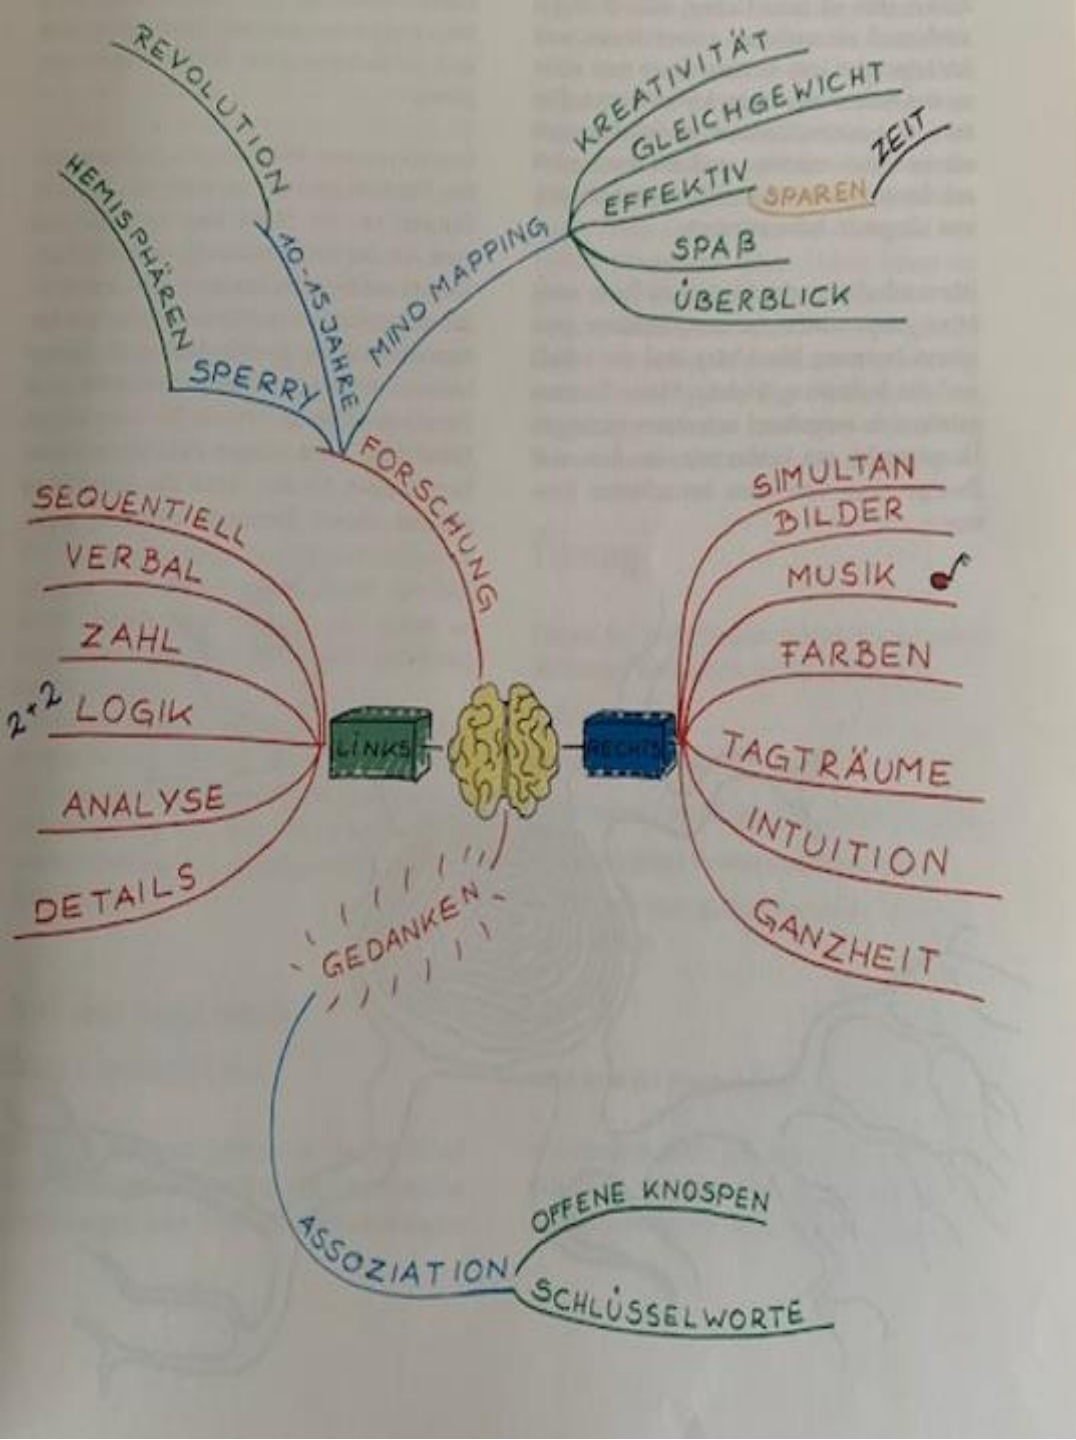 REVOLUTION
HEMISPHÄREN
10-15 JAHRE
SPERRY
MIND MAPPING
KREATIVITÄT
GLEICHGEWICHT
EFFEKTIV
SPAREN
ZEIT
SPAß
ÜBERBLICK
FORSCHUNG
SEQUENTIELL
VERBAL
ZAHL
2+2
LOGIK
ANALYSE
DETAILS
LINKS
RECHTS
SIMULTAN
BILDER
MUSIK
FARBEN
TAGTRÄUME
INTUITION
GANZHEIT
GEDANKEN
ASSOZIATION
OFFENE KNOSPEN
SCHLÜSSELWORTE